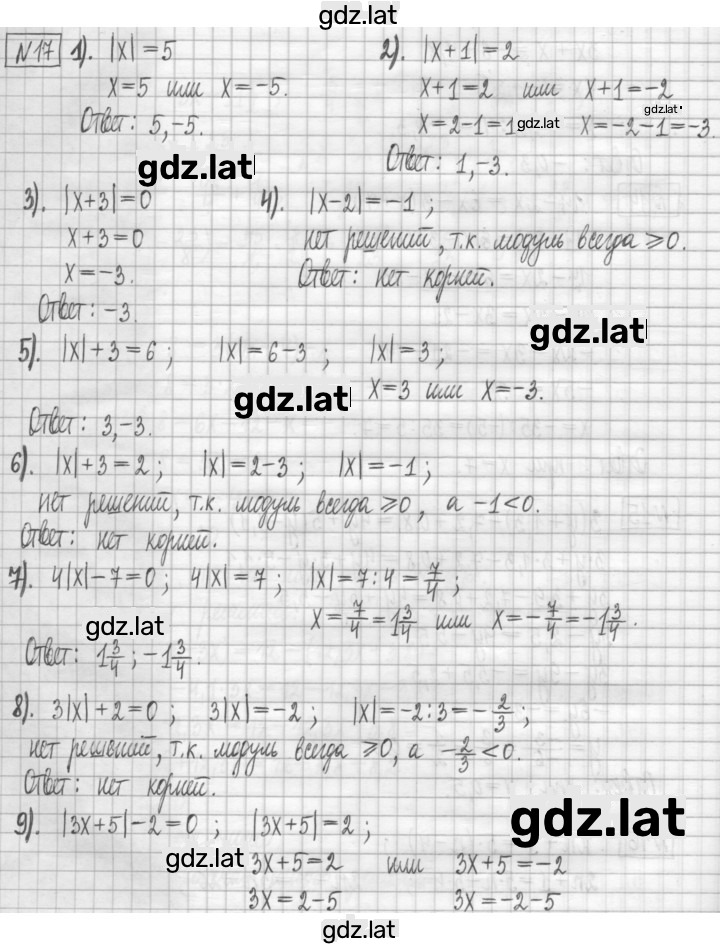 gdz.lat
№17 1). |x| = 5
x=5 или x=-5.
Ответ: 5, -5.
2). |x+1| = 2
x+1=2 или x+1=-2
gdz.lat
x=2-1=1 gdz.lat x=-2-1=-3.
Ответ: 1, -3.
gdz.lat
3). |x+3| = 0
x+3=0
x=-3.
Ответ: -3.
4). |x-2| = -1 ;
нет решений, т.к. модуль всегда ≥0.
Ответ: нет корней.
gdz.lat
5). |x|+3=6 ; |x|=6-3 ; |x|=3 ;
gdz.lat x=3 или x=-3.
Ответ: 3, -3.
6). |x|+3=2 ; |x|=2-3 ; |x|=-1 ;
нет решений, т.к. модуль всегда ≥0, а -1<0.
Ответ: нет корней.
7). 4|x|-7=0 ; 4|x|=7 ; |x|=7:4=7/4 ;
x=7/4=1 3/4 или x=-7/4=-1 3/4.
gdz.lat
Ответ: 1 3/4 ; -1 3/4.
8). 3|x|+2=0 ; 3|x|=-2 ; |x|=-2:3=-2/3 ;
нет решений, т.к. модуль всегда ≥0, а -2/3<0.
Ответ: нет корней.
gdz.lat
9). |3x+5|-2=0 ; |3x+5|=2 ;
gdz.lat 3x+5=2 или 3x+5=-2
3x=2-5 3x=-2-5
gdz.lat